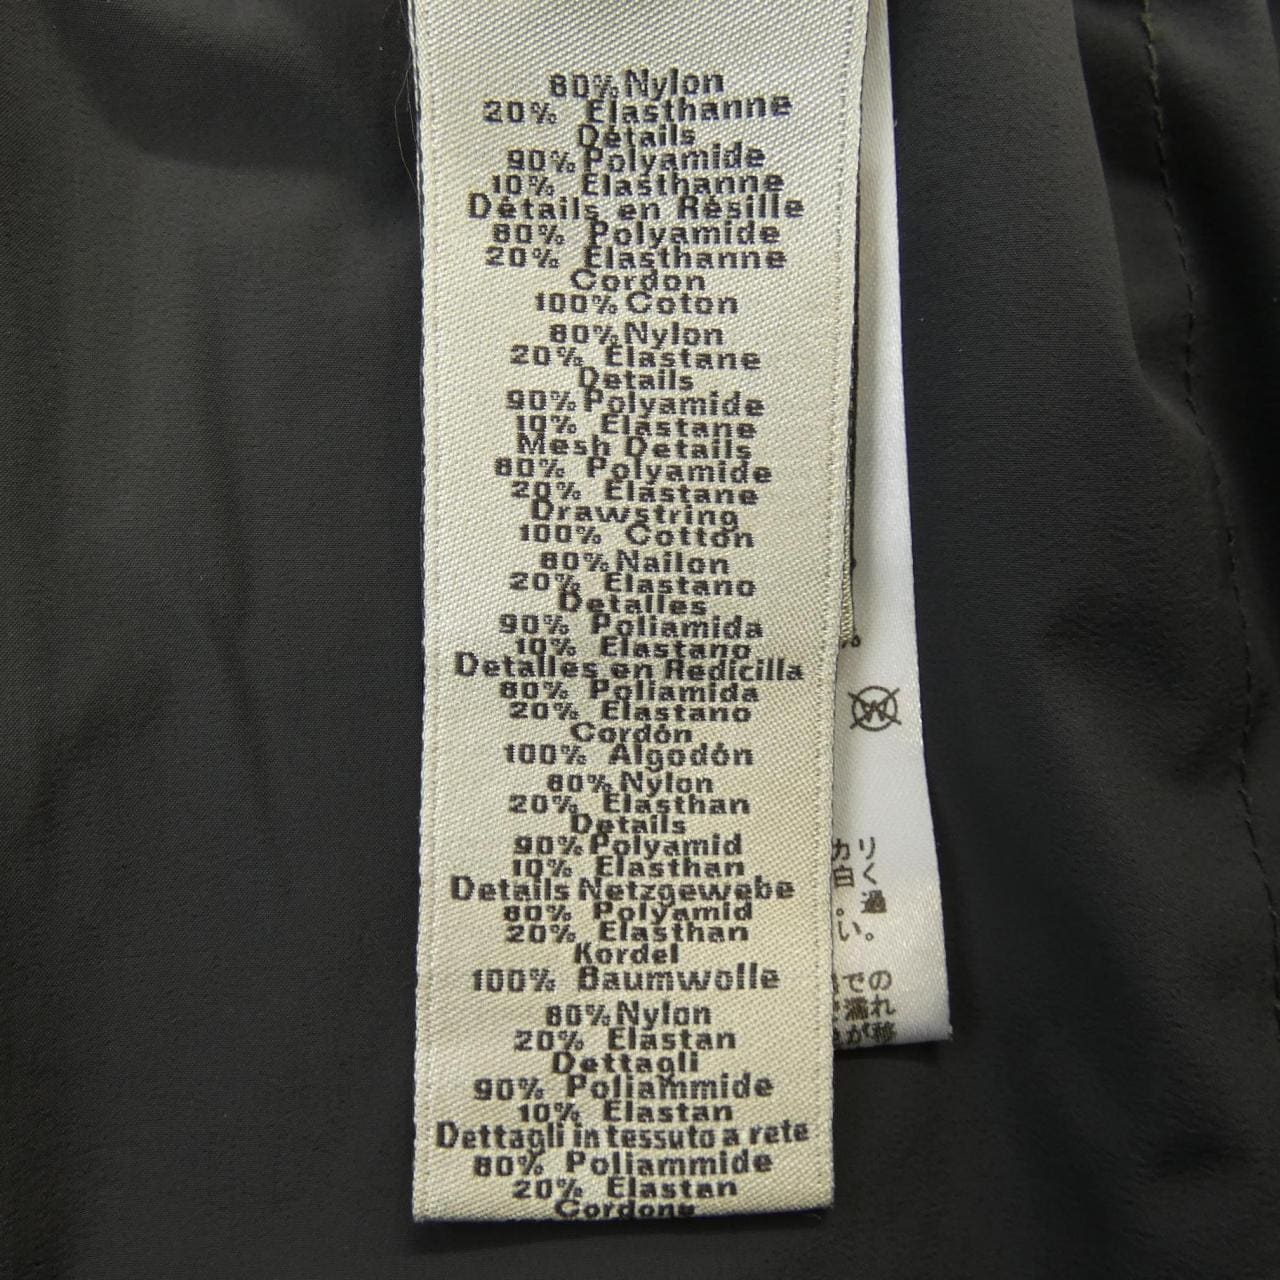 80% Nylon
20% Elasthanne
Détails
90% Polyamide
10% Elasthanne
Détails en Résille
80% Polyamide
20% Elasthanne
Cordon
100% Coton
80% Nylon
20% Elastane
Details
90% Polyamide
10% Elastane
Mesh Details
80% Polyamide
20% Elastane
Drawstring
100% Cotton
80% Nailon
20% Elastano
Detalles
90% Poliamida
10% Elastano
Detalles en Redicilla
80% Poliamida
20% Elastano
Cordón
100% Algodón
80% Nylon
20% Elasthan
Details
90% Polyamid
10% Elasthan
Details Netzgewebe
80% Polyamid
20% Elasthan
Kordel
100% Baumwolle
80% Nylon
20% Elastan
Dettagli
90% Poliammide
10% Elastan
Dettagli in tessuto a rete
80% Poliammide
20% Elastan
Cordone
%
W
カリ
白く
。過
い。
での
濡れ
が移